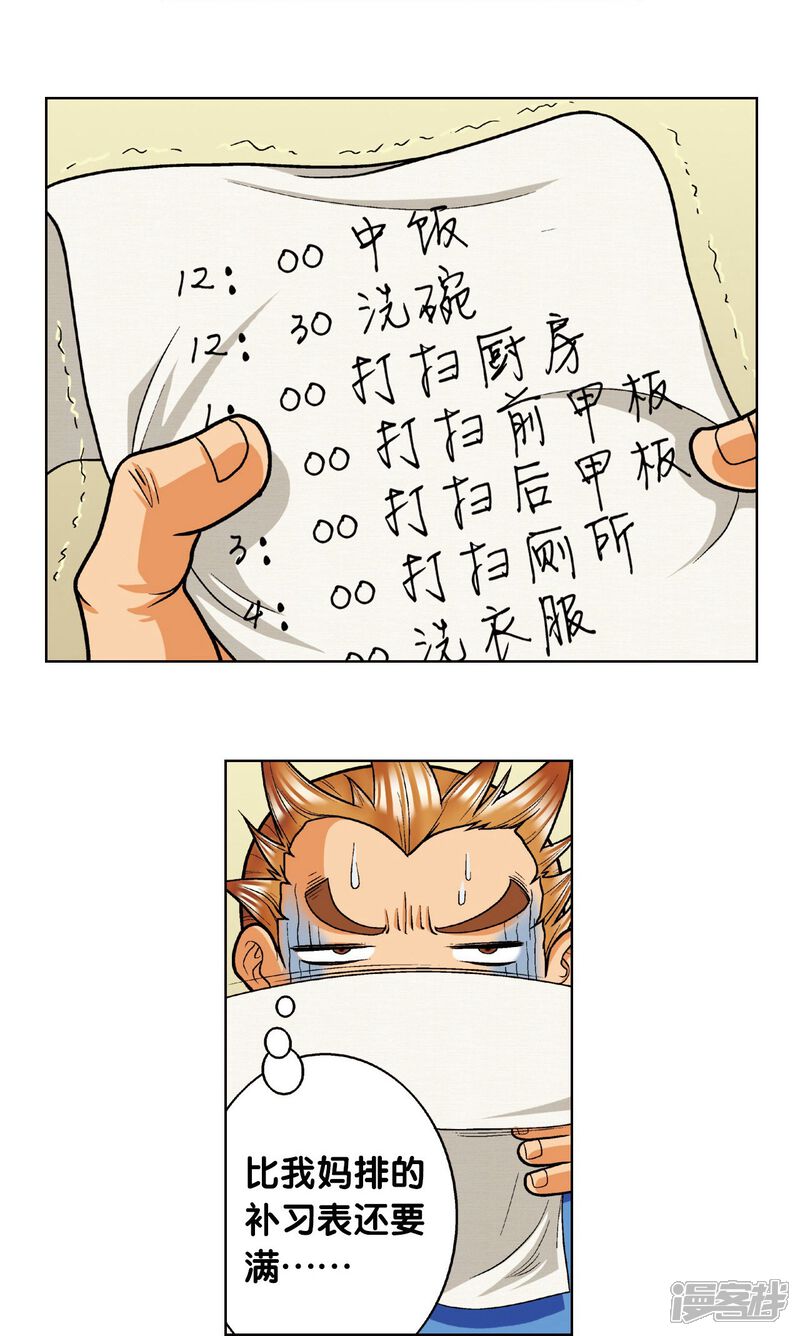 12：00 中饭
12：30 洗碗
1：00 打扫厨房
00 打扫前甲板
3：00 打扫后甲板
4：00 打扫厕所
00 洗衣服
比我妈排的
补习表还要
满……
漫客栈